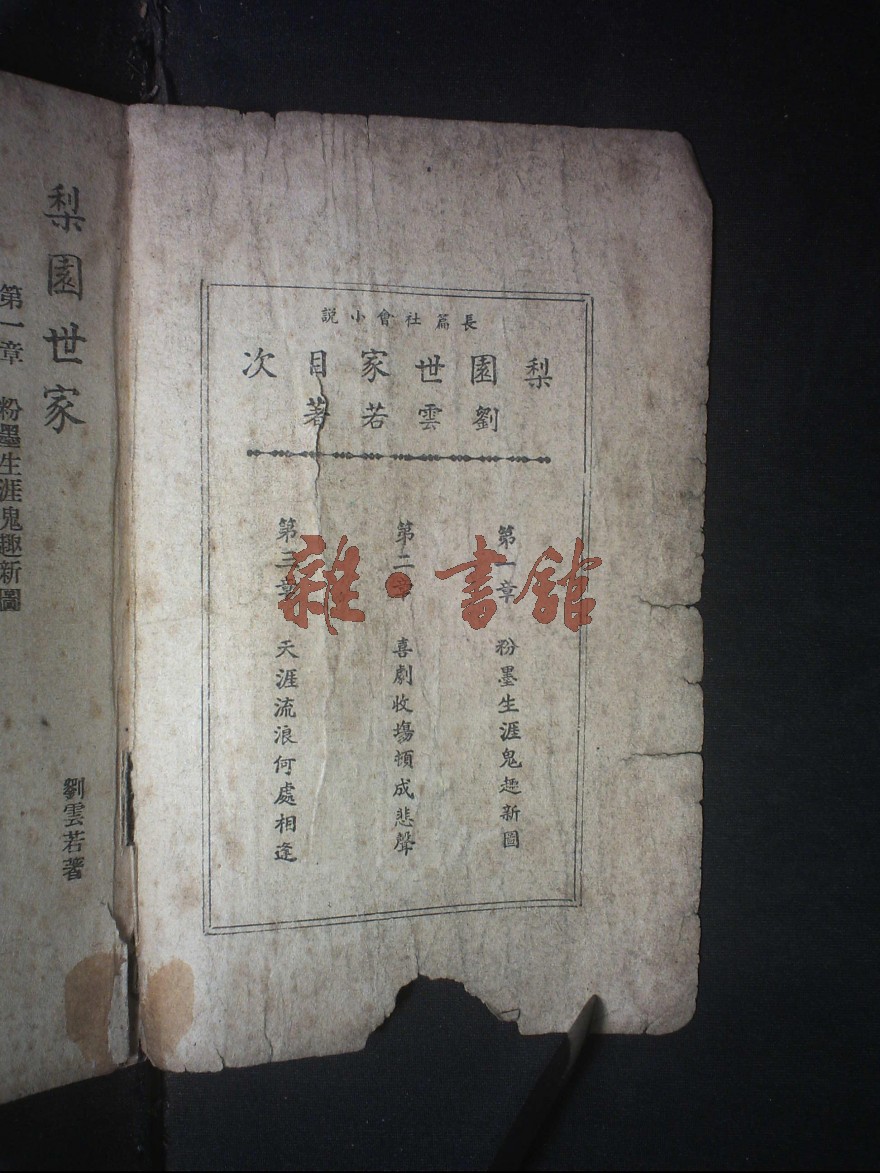 長篇社會小説
梨園世家目次
劉雲若著
第一章 粉墨生涯鬼趣新圖
第二章 喜劇收塲頓成悲聲
第三章 天涯流浪何處相逢
雜·書館
梨園世家
劉雲若著
第一章 粉墨生涯鬼趣新圖